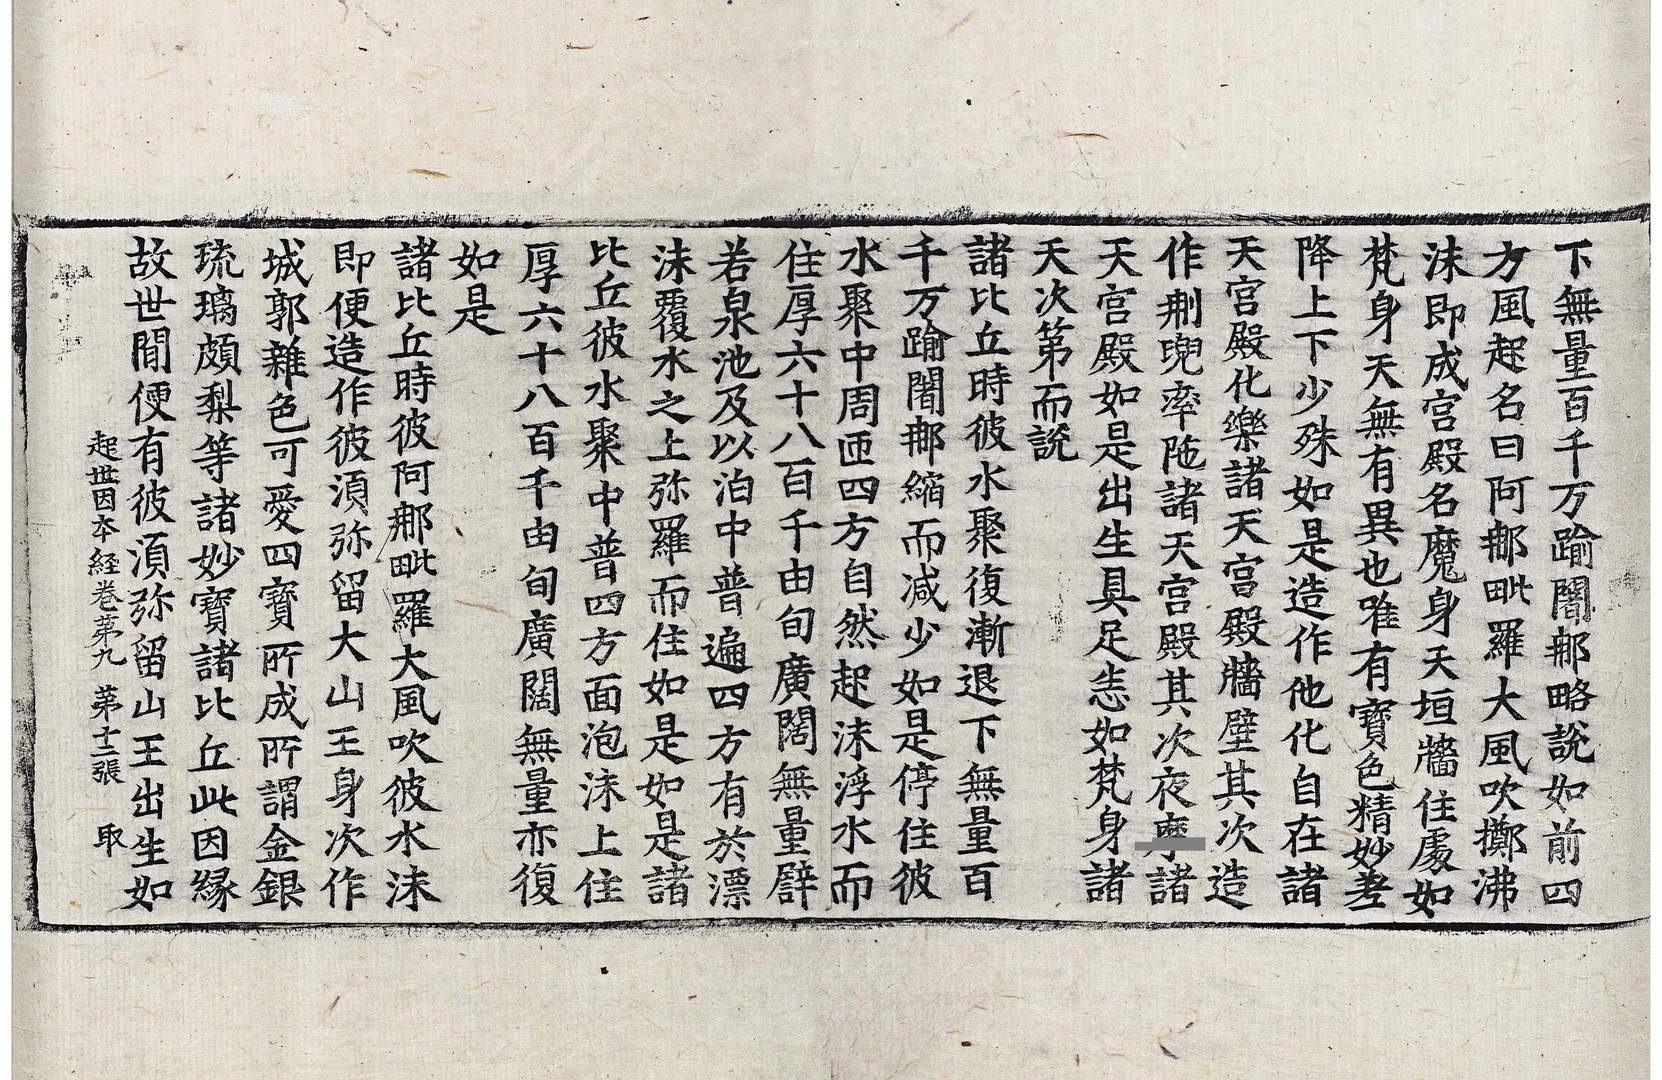 下無量百千万踰闍郍略說如前四
方風起名曰阿郍毗羅大風吹擲沸
沫即成宮殿名魔身天垣牆住處如
梵身天無有異也唯有寶色精妙差
降上下少殊如是造作他化自在諸
天宮殿化樂諸天宮殿牆壁其次造
作刪兜率陁諸天宮殿其次夜諸
天宮殿如是出生具足悉如梵身諸
天次第而說
諸比丘時彼水聚復漸退下無量百
千万踰闍郍縮而减少如是停住彼
水聚中周匝四方自然起沫浮水而
住厚六十八百千由旬廣闊無量譬
若泉池及以泊中普遍四方有於漂
沫覆水之上弥羅而住如是如是諸
比丘彼水聚中普四方面泡沫上住
厚六十八百千由旬廣闊無量亦復
如是
諸比丘時彼阿郍毗羅大風吹彼水沫
即便造作彼湏弥留大山王身次作
城郭雜色可愛四寶所成所謂金銀
琉璃頗梨等諸妙寶諸比丘此因緣
故世間便有彼湏弥留山王出生如
起世因本經卷第九 第十二張 取